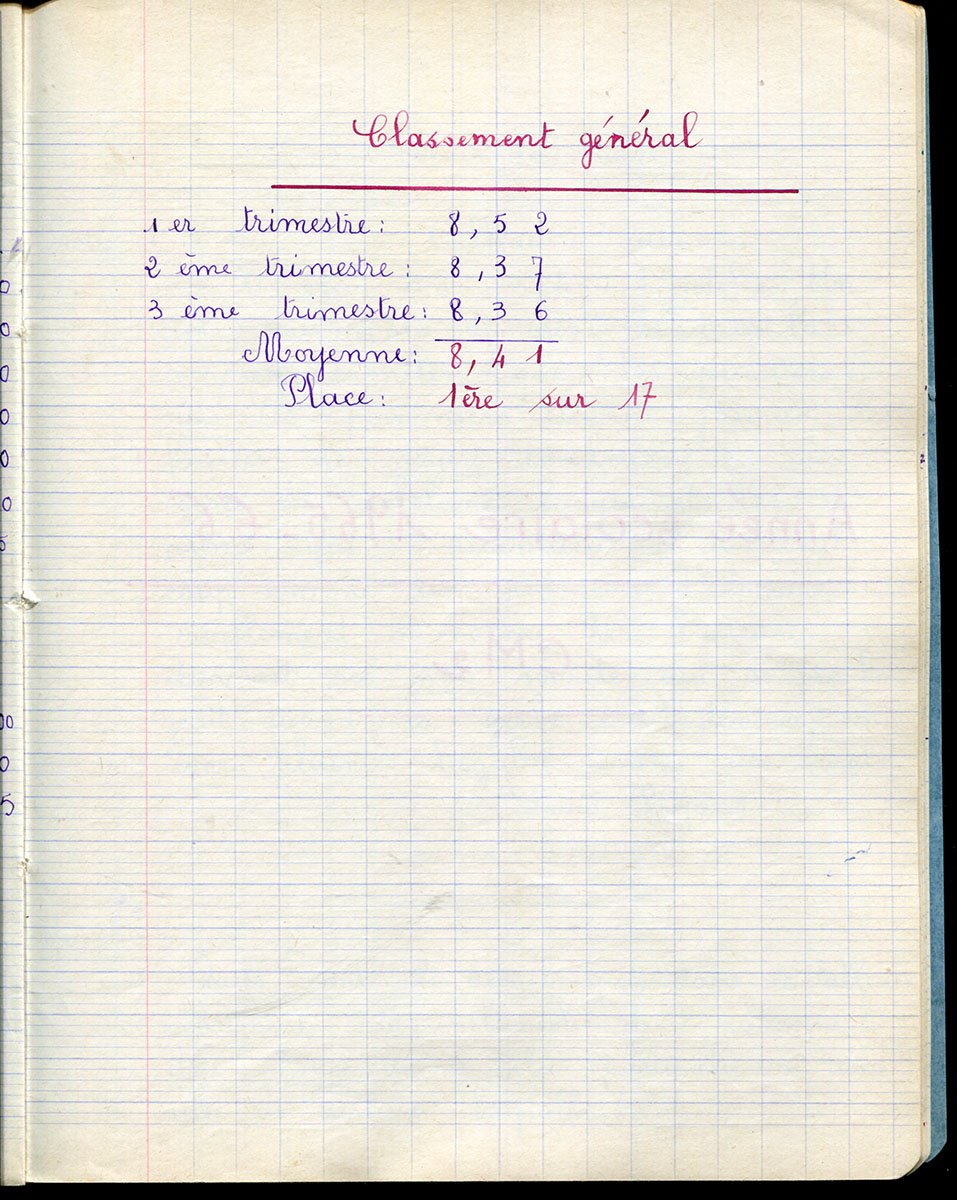 Classement général
1er trimestre: 8,52
2ème trimestre: 8,37
3ème trimestre: 8,36
Moyenne: 8,41
Place: 1ère sur 17